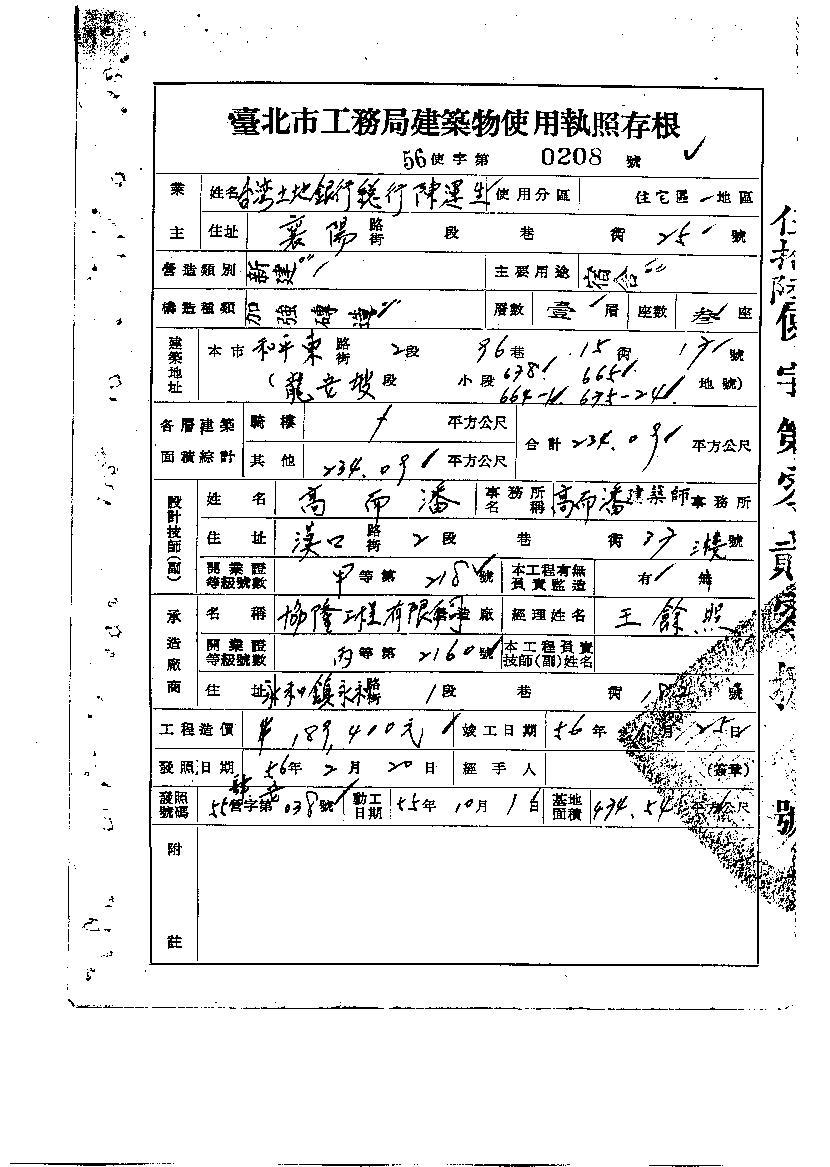 臺北市工務局建築物使用執照存根
56使字第 0208 號
業主 姓名 台湾土地銀行總行陳運生 使用分區 住宅區 地區
住址 襄陽 路街 段 巷 街 25 號
營造類別 新建 主要用途 宿舍
構造種類 加強磚造 層數 壹 層 座數 叁 座
建築地址 本市 和平東 路街 2段 96巷 15街 號
(龍安坡 段 小段 638 665 地號)
664-1 675-24
各層建築面積綜計 騎樓 平方公尺 合計 234.09 平方公尺
其他 234.09 平方公尺
設計技師(副) 姓名 高而潘 事務所名稱 高而潘建築師 事務所
住址 漢口 路街 2段 巷 街 33 號 三樓
開業證等級號數 甲等第 218 號 本工程有無負責監造 有 無
承造廠商 名稱 協隆工程有限公司 造廠 經理姓名 王餘照
開業證等級號數 丙等第 2160號 本工程負責技師(副)姓名
住址 永和鎮永和 路街 1段 巷 街 號
工程造價 189,400元 竣工日期 56年 月 25日
發照日期 56年 2月 20日 經手人 (簽章)
發照號碼 55營字第 038號 動工日期 55年 10月 1日 基地面積 434.54 平方公尺
附註
伍拾陸使字第零貳零捌號